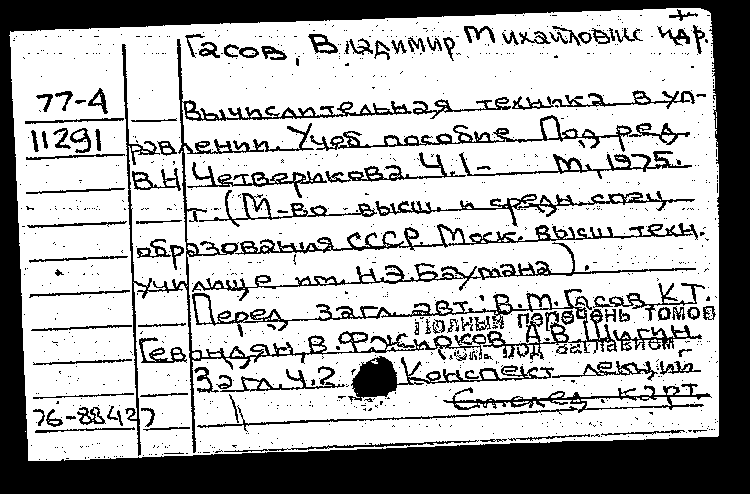 Гасов, Владимир Михайлович идр.
77-4
Вычислительная техника в уп-
11291
равлении. Учеб. пособие. Под ред.
В.Н. Четверикова. Ч.1- М., 1975.
т. (М-во высш. и средн. спец.
образования СССР. Моск. высш техн.
училище им. Н.Э.Баумана).
Перед загл. авт.: В.М.Гасов, К.Т.
Полный перечень томов
Гевондян, В.Ф. Жирков А.В. Шигин.
См. под заглавием
Загл. Ч.2 Конспект лекций
См. след. карт.
76-88427